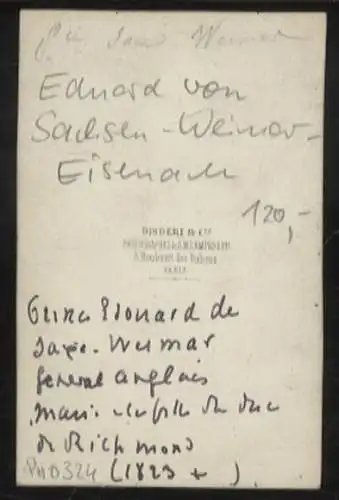 Pce Saxe Weimar
Eduard von
Sachsen-Weimar-
Eisenach
120,-
DISDERI & Cie
PHOTOGRAPHES de S.M. L'EMPEREUR
8 Boulevart des Italiens
PARIS
Prince Edouard de
Saxe-Weimar
général anglais
mari de la fille du duc
de Richmond
(1823 + ).